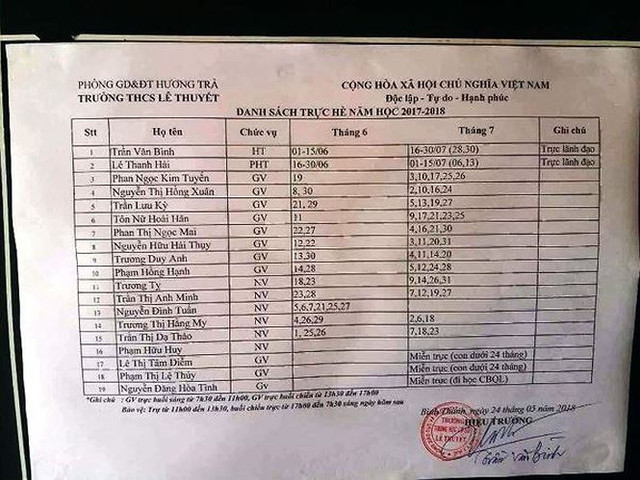 PHÒNG GD&ĐT HƯƠNG TRÀ CỘNG HÒA XÃ HỘI CHỦ NGHĨA VIỆT NAM
TRƯỜNG THCS LÊ THUYẾT Độc lập - Tự do - Hạnh phúc
DANH SÁCH TRỰC HÈ NĂM HỌC 2017-2018
Stt Họ tên Chức vụ Tháng 6 Tháng 7 Ghi chú
1 Trần Văn Bình HT 01-15/06 16-30/07 (28,30) Trực lãnh đạo
2 Lê Thanh Hải PHT 16-30/06 01-15/07 (06,13) Trực lãnh đạo
3 Phan Ngọc Kim Tuyến GV 19 3,10,17,25,26
4 Nguyễn Thị Hồng Xuân GV 8, 30 2,10,16,24
5 Trần Lưu Kỳ GV 21, 29 5,13,19,27
6 Tôn Nữ Hoài Hân GV 11 9,17,21,23,25
7 Phan Thị Ngọc Mai GV 22,27 4,16,21,30
8 Nguyễn Hữu Hải Thụy GV 12,22 3,11,20,31
9 Trương Duy Anh GV 13,30 4,11,14,20
10 Phạm Hồng Hạnh GV 14,28 5,12,24,28
11 Trương Tỵ NV 18,23 9,14,26,31
12 Trần Thị Anh Minh NV 23,28 7,12,19,27
13 Nguyễn Đình Tuấn NV 5,6,7,21,25,27
14 Trương Thị Hằng My NV 4,26,29 2,6,18
15 Trần Thị Dạ Thảo NV 1, 25,26 7,18,23
16 Phạm Hữu Huy NV
17 Lê Thị Tâm Diễm GV Miễn trực (con dưới 24 tháng)
18 Phạm Thị Lệ Thủy GV Miễn trực (con dưới 24 tháng)
19 Nguyễn Đăng Hòa Tình Gv Miễn trực (đi học CBQL)
*Ghi chú : GV trực buổi sáng từ 7h30 đến 11h00, GV trực buổi chiều từ 13h30 đến 17h00
Bảo vệ: Trự từ 11h00 đến 13h30, buổi chiều trực từ 17h00 đến 7h30 sáng ngày hôm sau
Bình Thành, ngày 24 tháng 05 năm 2018
HIỆU TRƯỞNG
TRƯỜNG
TRUNG HỌC CƠ SỞ
LÊ THUYẾT
Trần Văn Bình